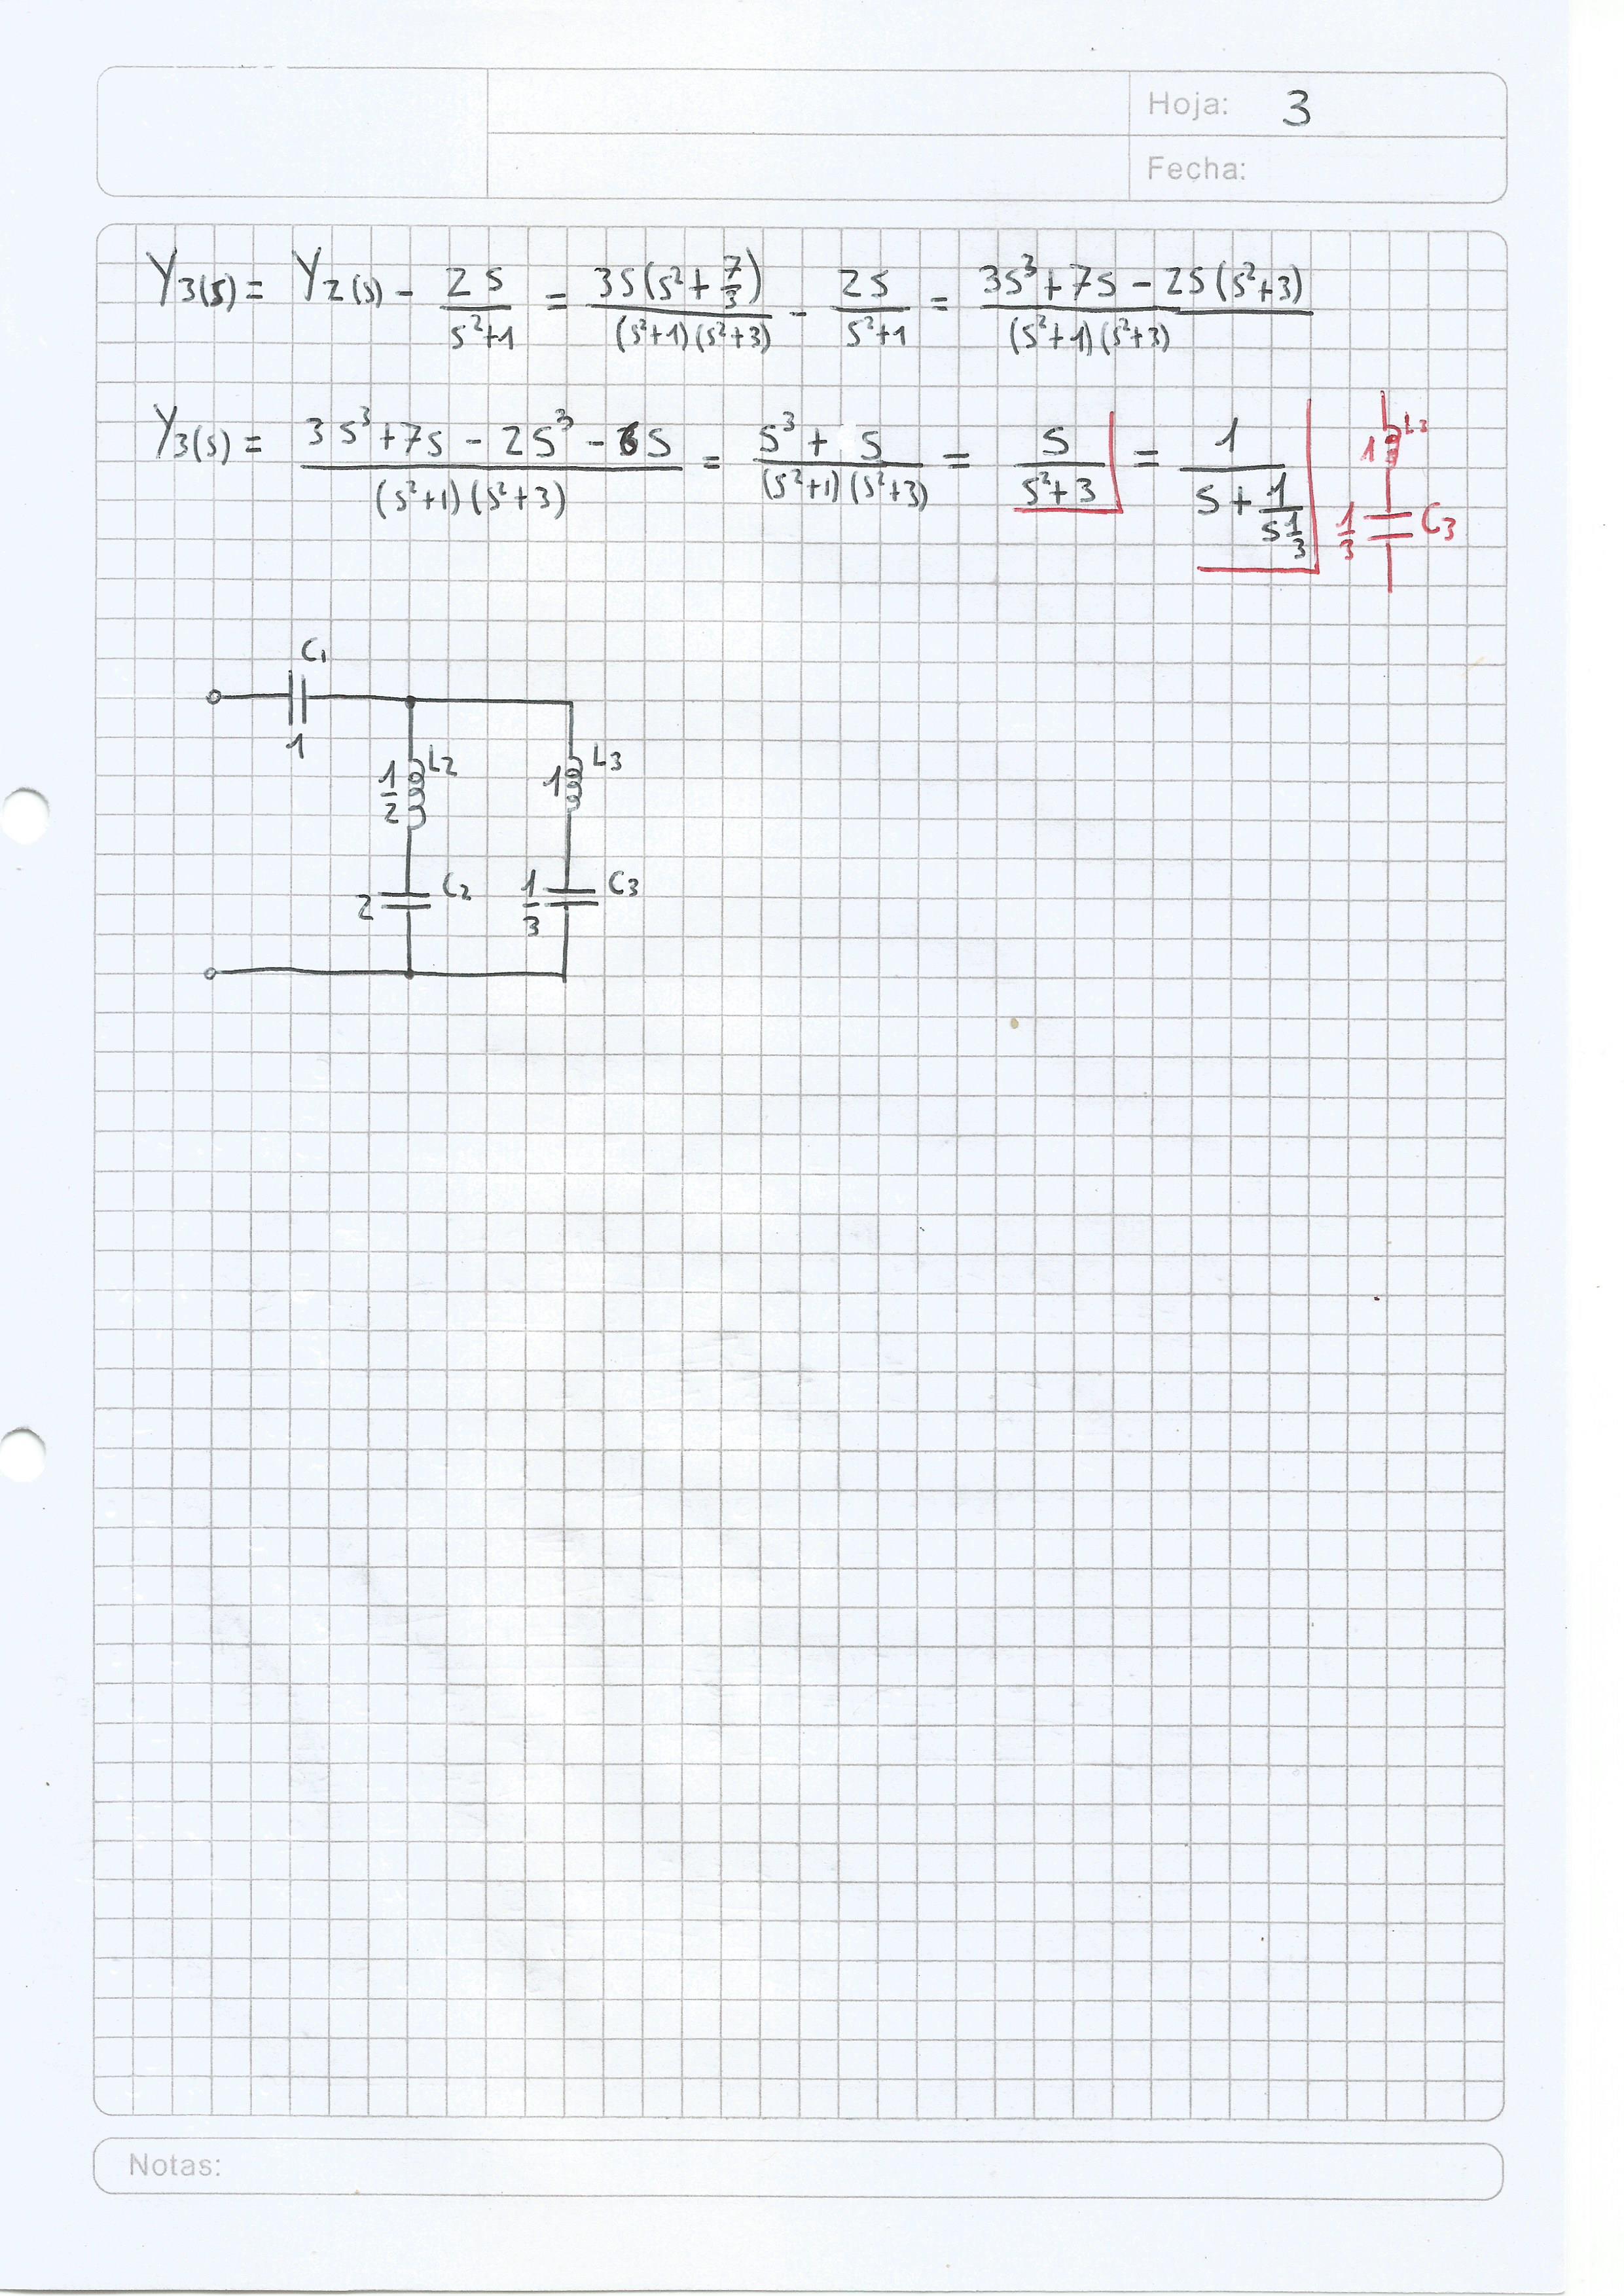 Hoja: 3
Fecha:
Y₃(s) = Y₂(s) - 2s/(s²+1) = 3s(s²+7/3)/((s²+1)(s²+3)) - 2s/(s²+1) = (3s³+7s-2s(s²+3))/((s²+1)(s²+3))
Y₃(s) = (3s³+7s-2s³-6s)/((s²+1)(s²+3)) = (s³+s)/((s²+1)(s²+3)) = s/(s²+3) = 1/(s+1/(s1/3)) 1 L3 1/3 C3
C1
1
1/2 L2 1 L3
2 C2 1/3 C3
Notas: